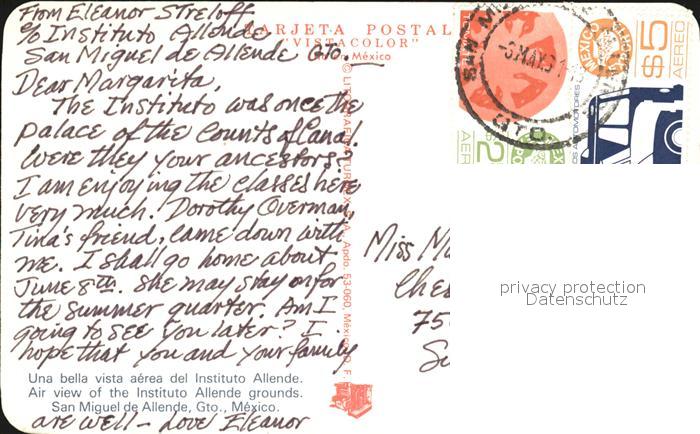 From Eleanor Streloff
c/o Instituto Allende
San Miguel de Allende Gto.
TARJETA POSTAL
"VISTACOLOR"
México
Dear Margarita,
The Institute was once the
Palace of the Counts of Canal.
Were they your ancestors?
I am enjoying the classes here
very much. Dorothy Overman,
Tina's friend, came down with
me. I shall go home about
June 8th. She may stay on for
the summer quarter. Am I
going to see you later? I
hope that you and your family
Una bella vista aérea del Instituto Allende.
Air view of the Instituto Allende grounds.
San Miguel de Allende, Gto., México.
are well – Love Eleanor
Apdo. 53-060, México
SAN MI
GTO
MEXICO
$5
AEREO
$2
AEREO
AUTOMOTORES
Miss
75
privacy protection
Datenschutz